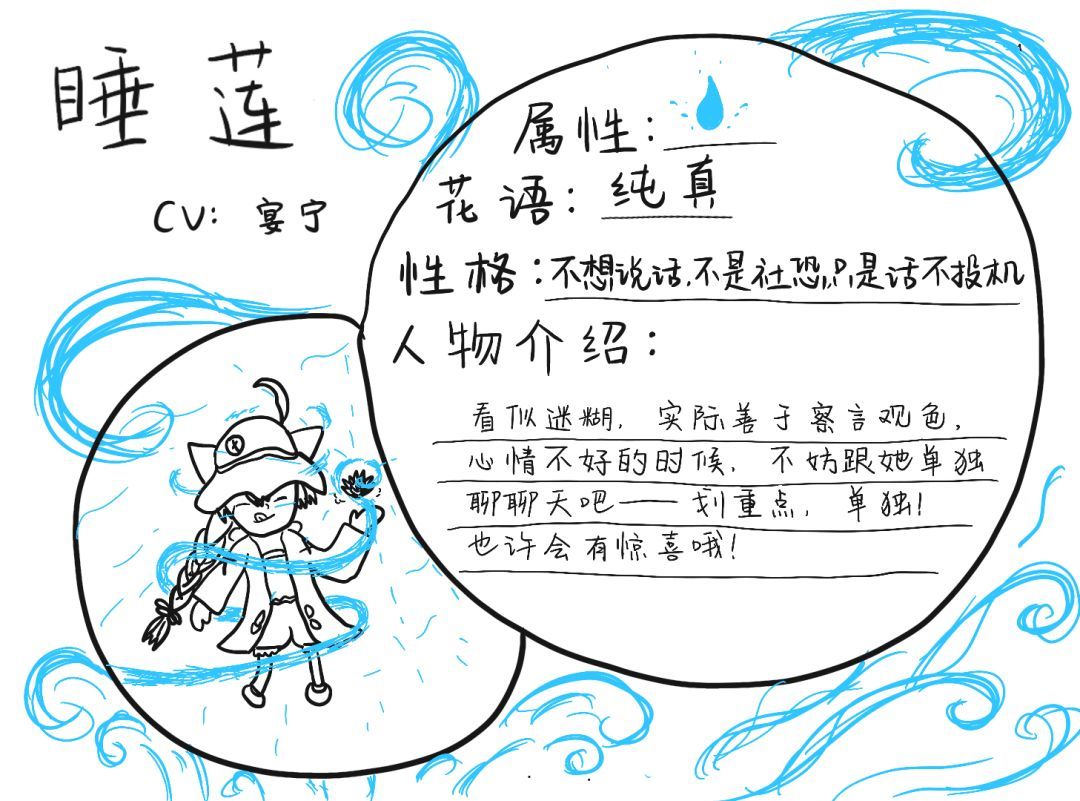 睡莲
CV: 宴宁
属性:
花语: 纯真
性格: 不想说话,不是社恐,只是话不投机
人物介绍:
看似迷糊,实际善于察言观色,
心情不好的时候,不妨跟她单独
聊聊天吧——划重点,单独!
也许会有惊喜哦!